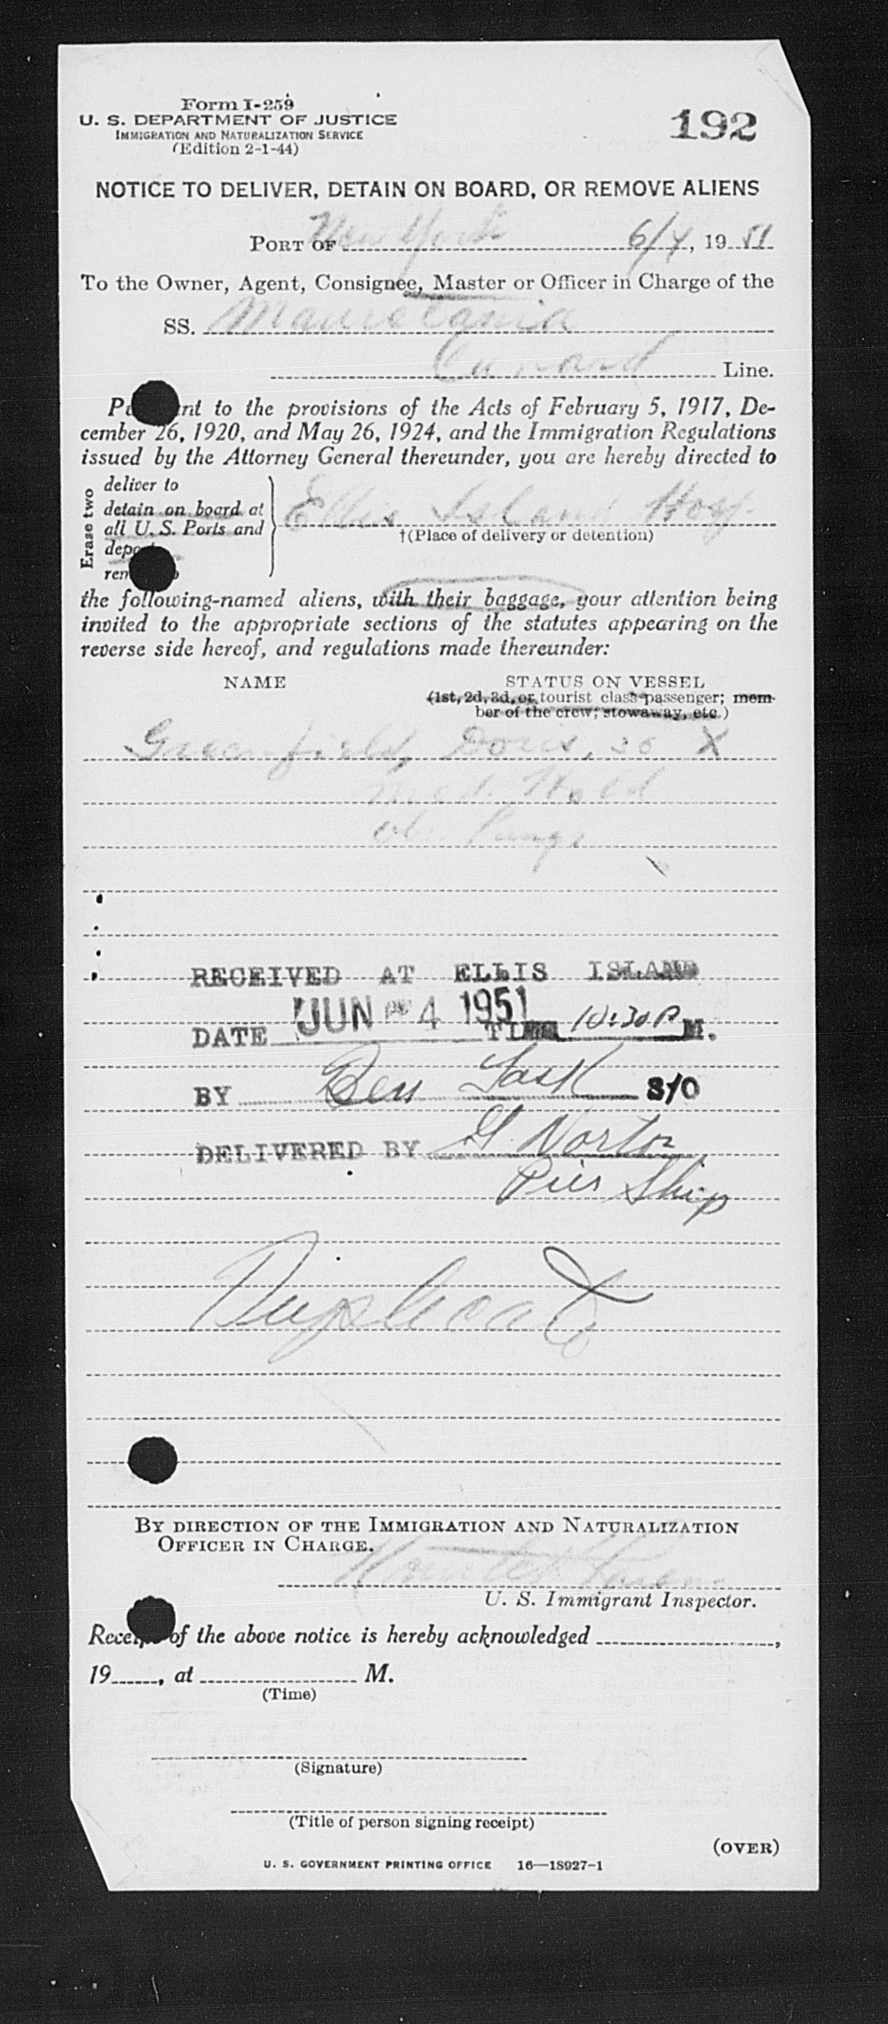 Form I-259
U. S. DEPARTMENT OF JUSTICE
IMMIGRATION AND NATURALIZATION SERVICE
(Edition 2-1-44)
192
NOTICE TO DELIVER, DETAIN ON BOARD, OR REMOVE ALIENS
PORT OF New York 6/4, 19 51
To the Owner, Agent, Consignee, Master or Officer in Charge of the
SS. Mauretania
Cunard Line.
nt to the provisions of the Acts of February 5, 1917, De-
cember 26, 1920, and May 26, 1924, and the Immigration Regulations
issued by the Attorney General thereunder, you are hereby directed to
Erase two
deliver to
detain on board at
all U. S. Ports and
Ellis Island Hosp.
†(Place of delivery or detention)
the following-named aliens, with their baggage, your attention being
invited to the appropriate sections of the statutes appearing on the
reverse side hereof, and regulations made thereunder:
NAME
STATUS ON VESSEL
(1st, 2d, 3d, or tourist class passenger; mem-
ber of the crew; stowaway, etc.)
Greenfield, Doris, X
Med. Hold
Lungs
RECEIVED AT ELLIS ISLAND
DATE JUN 4 1951 TIME 10:30 P M.
BY Ben S/O
DELIVERED BY G. Norton
Pier Ship
Duplicate
BY DIRECTION OF THE IMMIGRATION AND NATURALIZATION
OFFICER IN CHARGE.
U. S. Immigrant Inspector.
Receipt of the above notice is hereby acknowledged ,
19 , at M.
(Time)
(Signature)
(Title of person signing receipt)
(OVER)
U. S. GOVERNMENT PRINTING OFFICE 16—18927-1